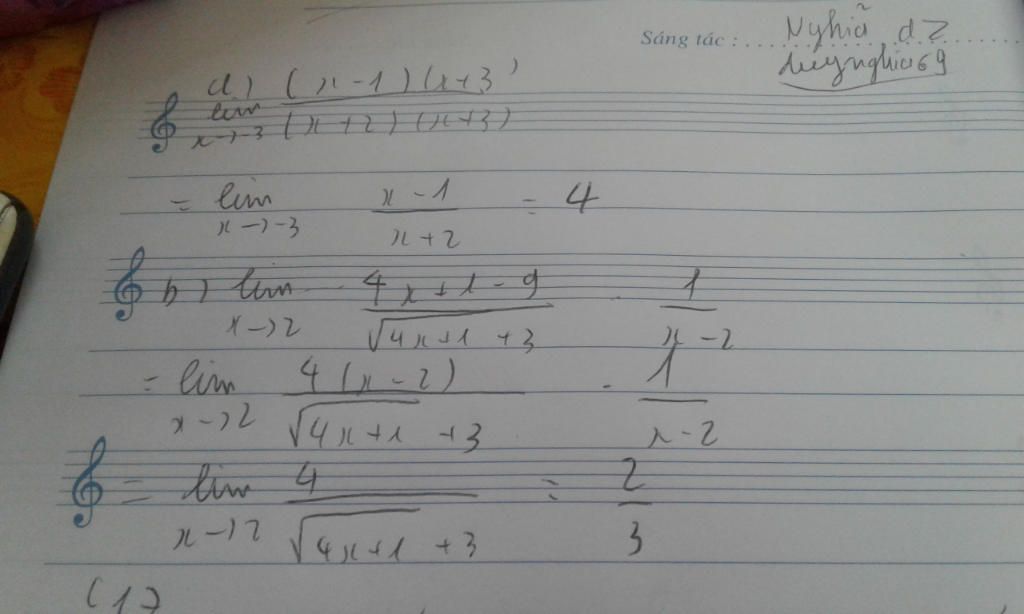 Sáng tác : Nghĩa dz
duynghia69
a) lim x→-3 (x-1)(x+3) / (x+2)(x+3)
= lim x→-3 x-1 / x+2 = 4
b) lim x→2 4x+1-9 / √4x+1 +3 . 1 / x-2
= lim x→2 4(x-2) / √4x+1 +3 . 1 / x-2
= lim x→2 4 / √4x+1 +3 = 2 / 3